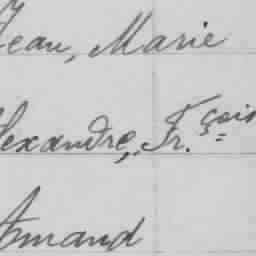 Jean, Marie
Alexandre, Fr.çois
Amand